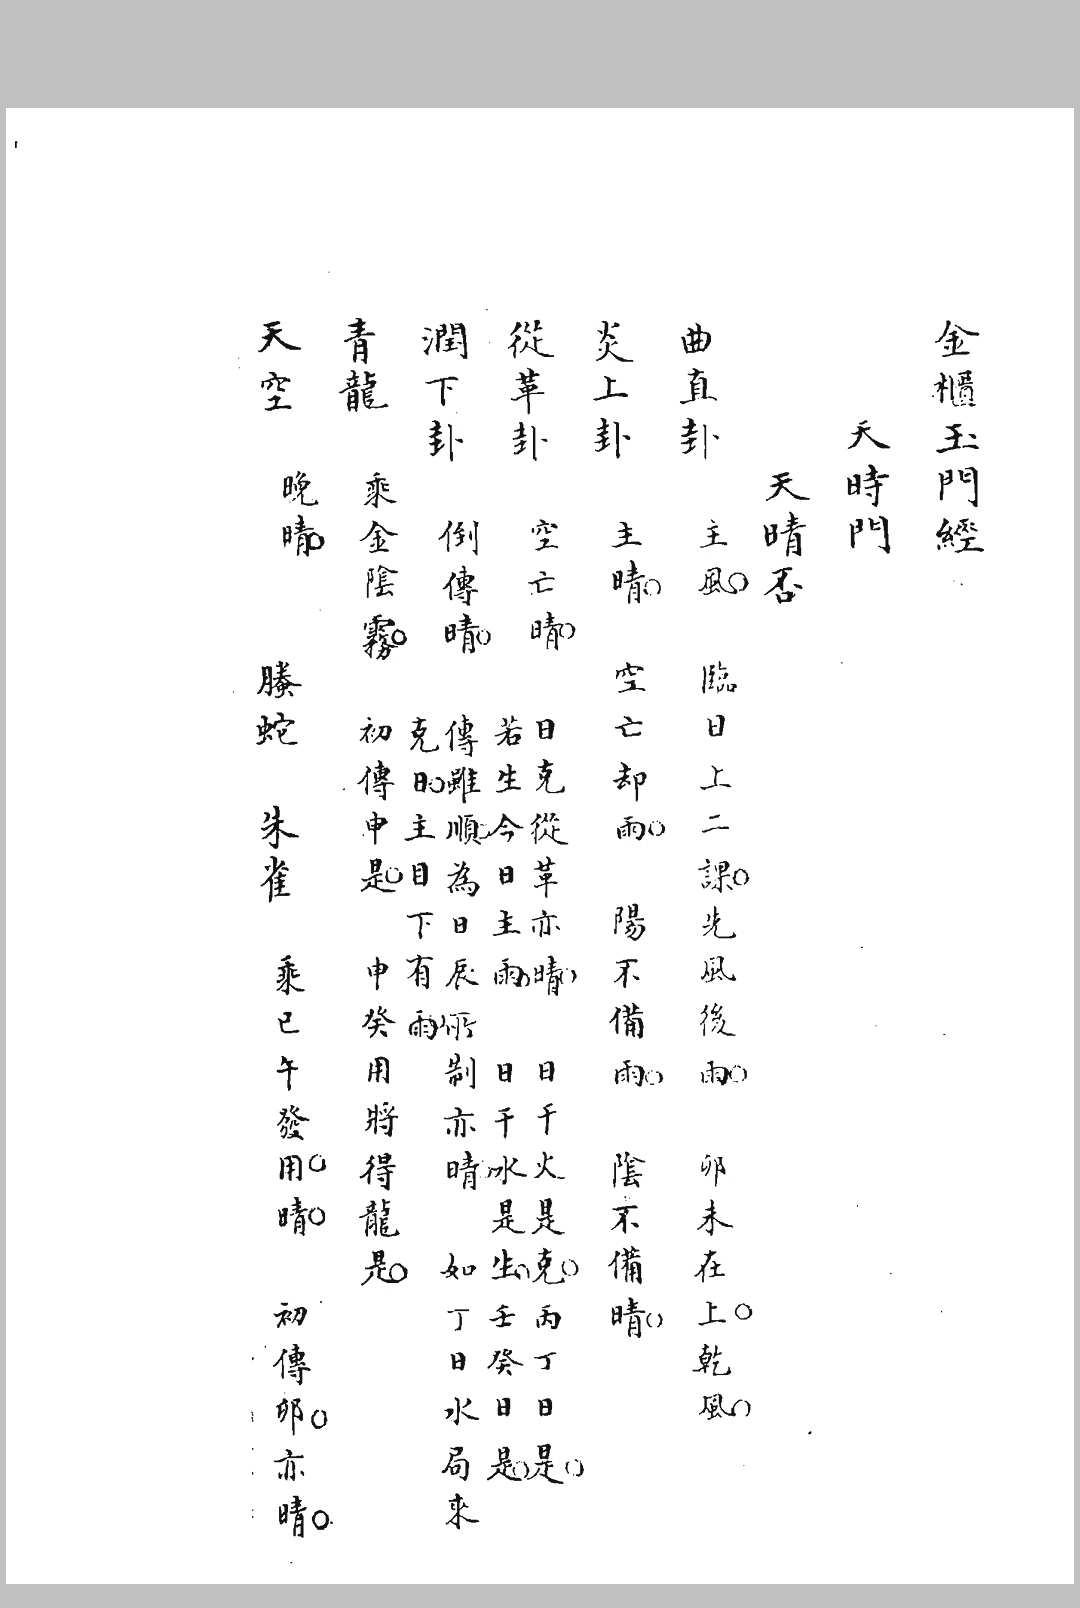 金櫃玉門經
天時門
天晴否
曲直卦　主風○　臨日上二課○先風後雨○　卯未在上○乾風○
炎上卦　主晴○　空亡却雨○　陽不備雨○　陰不備晴○
從革卦　空亡晴○　日克從革亦晴○　日干火是克○丙丁日是○
若生今日主雨○　日干水是生○壬癸日是○
潤下卦　倒傳晴○　傳雖順為日辰所制亦晴　如丁日水局來
克日○主目下有雨○
青龍　乘金陰霧○　初傳申是○　申癸用將得龍是○
天空　晚晴○　螣蛇　朱雀　乘巳午發用○晴○　初傳卯○亦晴○